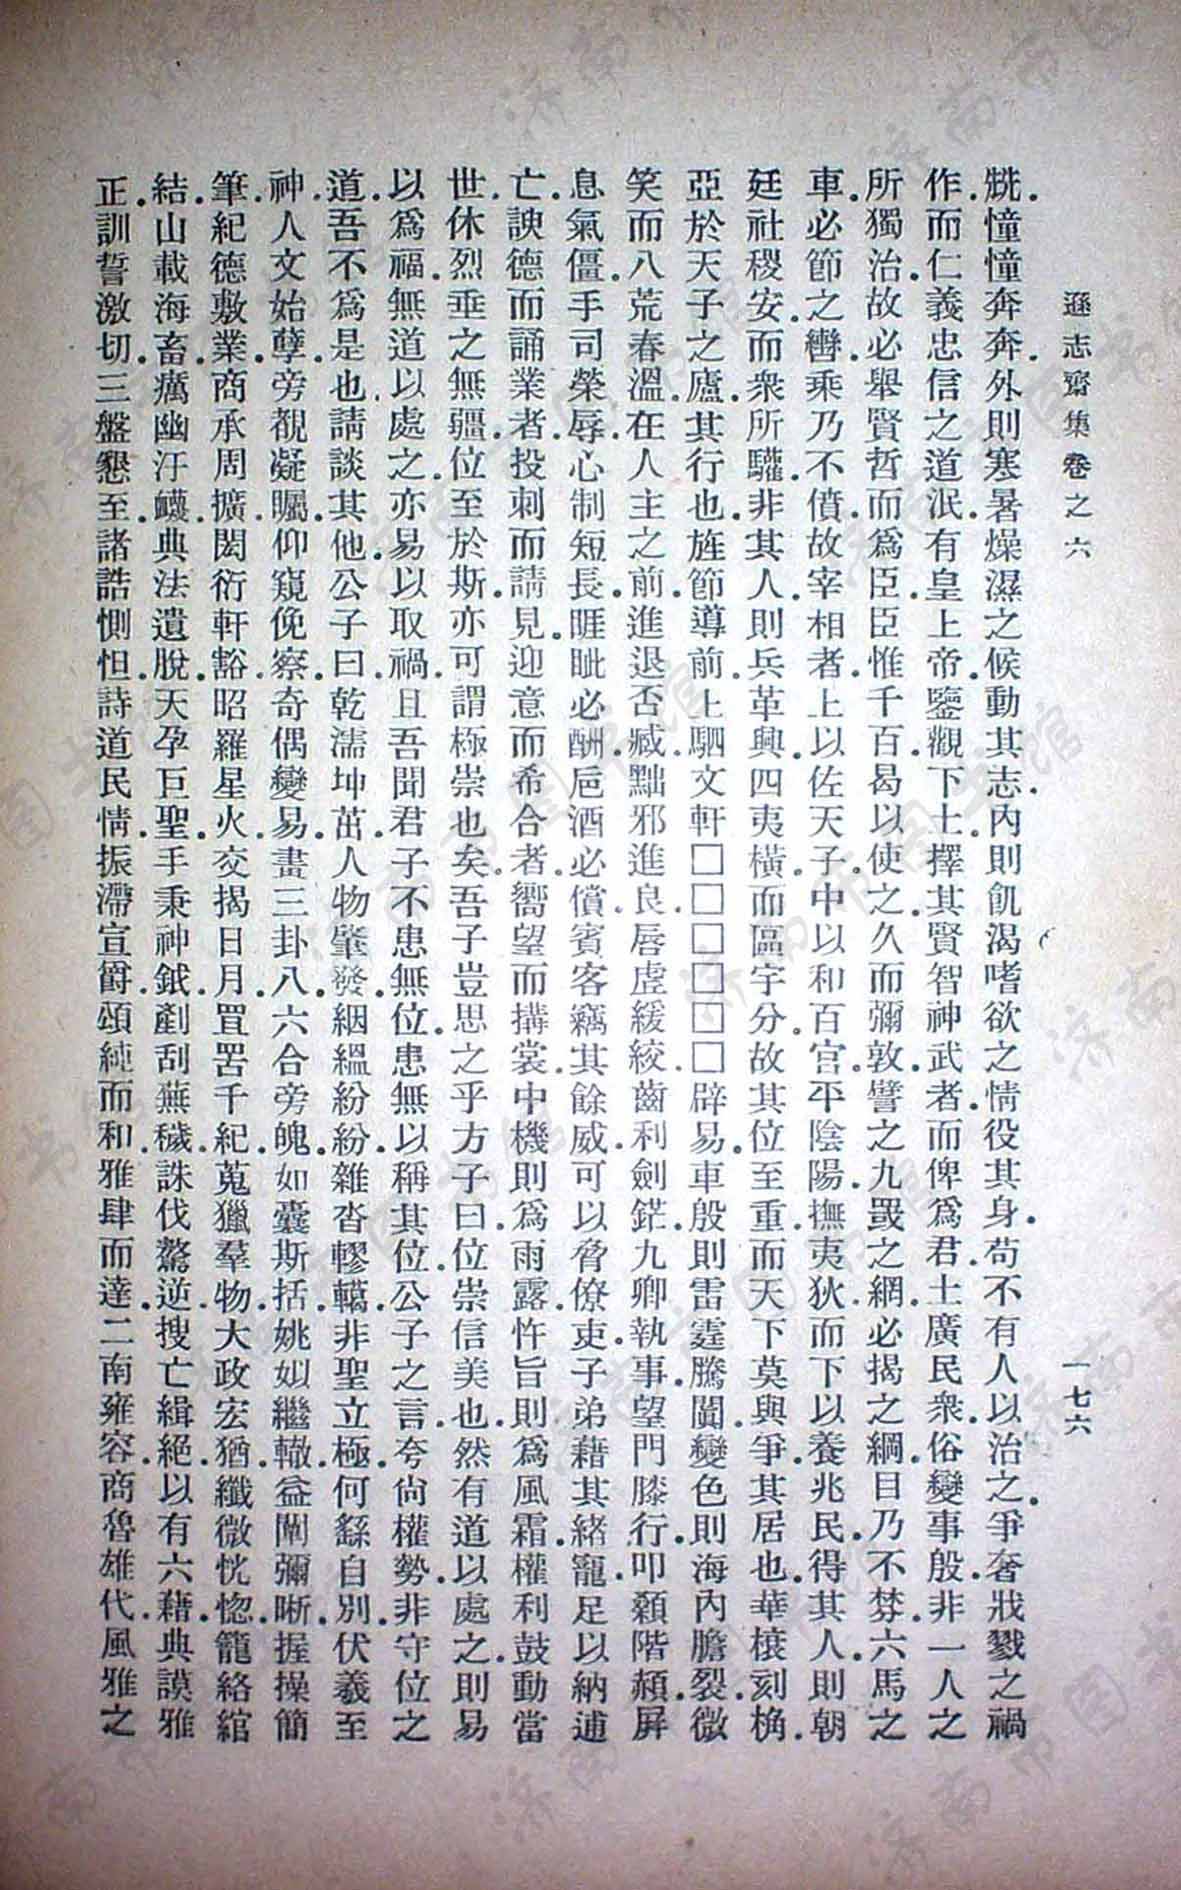 遜志齋集卷之六
一七六
兟.憧憧奔奔.外則寒暑燥濕之候動其志.內則飢渴嗜欲之情役其身.苟不有人以治之.爭奪戕戮之禍
作.而仁義忠信之道泯.有皇上帝.鑒觀下土.擇其賢智神武者.而俾爲君.土廣民衆.俗變事殷.非一人之
所獨治.故必舉賢哲而爲臣.臣惟千百.曷以使之.久而彌敦.譬之九罭之網.必揭之綱.目乃不棼.六馬之
車.必節之轡.乘乃不僨.故宰相者.上以佐天子.中以和百官.平陰陽.撫夷狄.而下以養兆民.得其人.則朝
廷社稷安.而衆所驩.非其人.則兵革興.四夷橫而區宇分.故其位至重.而天下莫與爭.其居也.華榱刻桷.
亞於天子之廬.其行也.旌節導前.上駟文軒.□□□□□□辟易.車殷則雷霆騰闐.變色則海內膽裂.微
笑而八荒春溫.在人主之前.進退否臧.黜邪進良.唇虛緩絞.齒利劍鋩.九卿執事.望門膝行.叩顙階頳.屏
息氣僵.手司榮辱.心制短長.睚眦必酬.巵酒必償.賓客竊其餘威.可以脅僚吏.子弟藉其緒寵.足以納逋
亡.諛德而誦業者.投刺而請見.迎意而希合者.嚮望而搆裳.中機則爲雨露.忤旨則爲風霜.權利鼓動當
世.休烈垂之無疆.位至於斯.亦可謂極崇也矣.吾子豈思之乎.方子曰.位崇信美也.然有道以處之.則易
以爲福.無道以處之.亦易以取禍.且吾聞君子不患無位.患無以稱其位.公子之言.夸尙權勢.非守位之
道.吾不爲是也.請談其他.公子曰.乾濡坤茁.人物肇發.絪縕紛紛.雜沓轇轕.非聖立極.何繇自別.伏羲至
神.人文始孽.旁覩凝矚.仰窺俛察.奇偶變易.畫三卦八.六合旁魄.如囊斯括.姚姒繼轍.益闡彌晰.握操簡
筆.紀德敷業.商承周擴.閎衍軒豁.昭羅星火.交揭日月.罝罟千紀.蒐獵羣物.大政宏猶.纖微恍惚.籠絡綰
結.山載海畜.癘幽汙衊.典法遺脫.天孕巨聖.手秉神鉞.剷刮蕪穢.誅伐驁逆.搜亡緝絕.以有六藉.典謨雅
正.訓誓激切.三盤懇至.諸誥惻怛.詩道民情.振滯宣鬱.頌純而和.雅肆而達.二南雍容.商魯雄代.風雅之